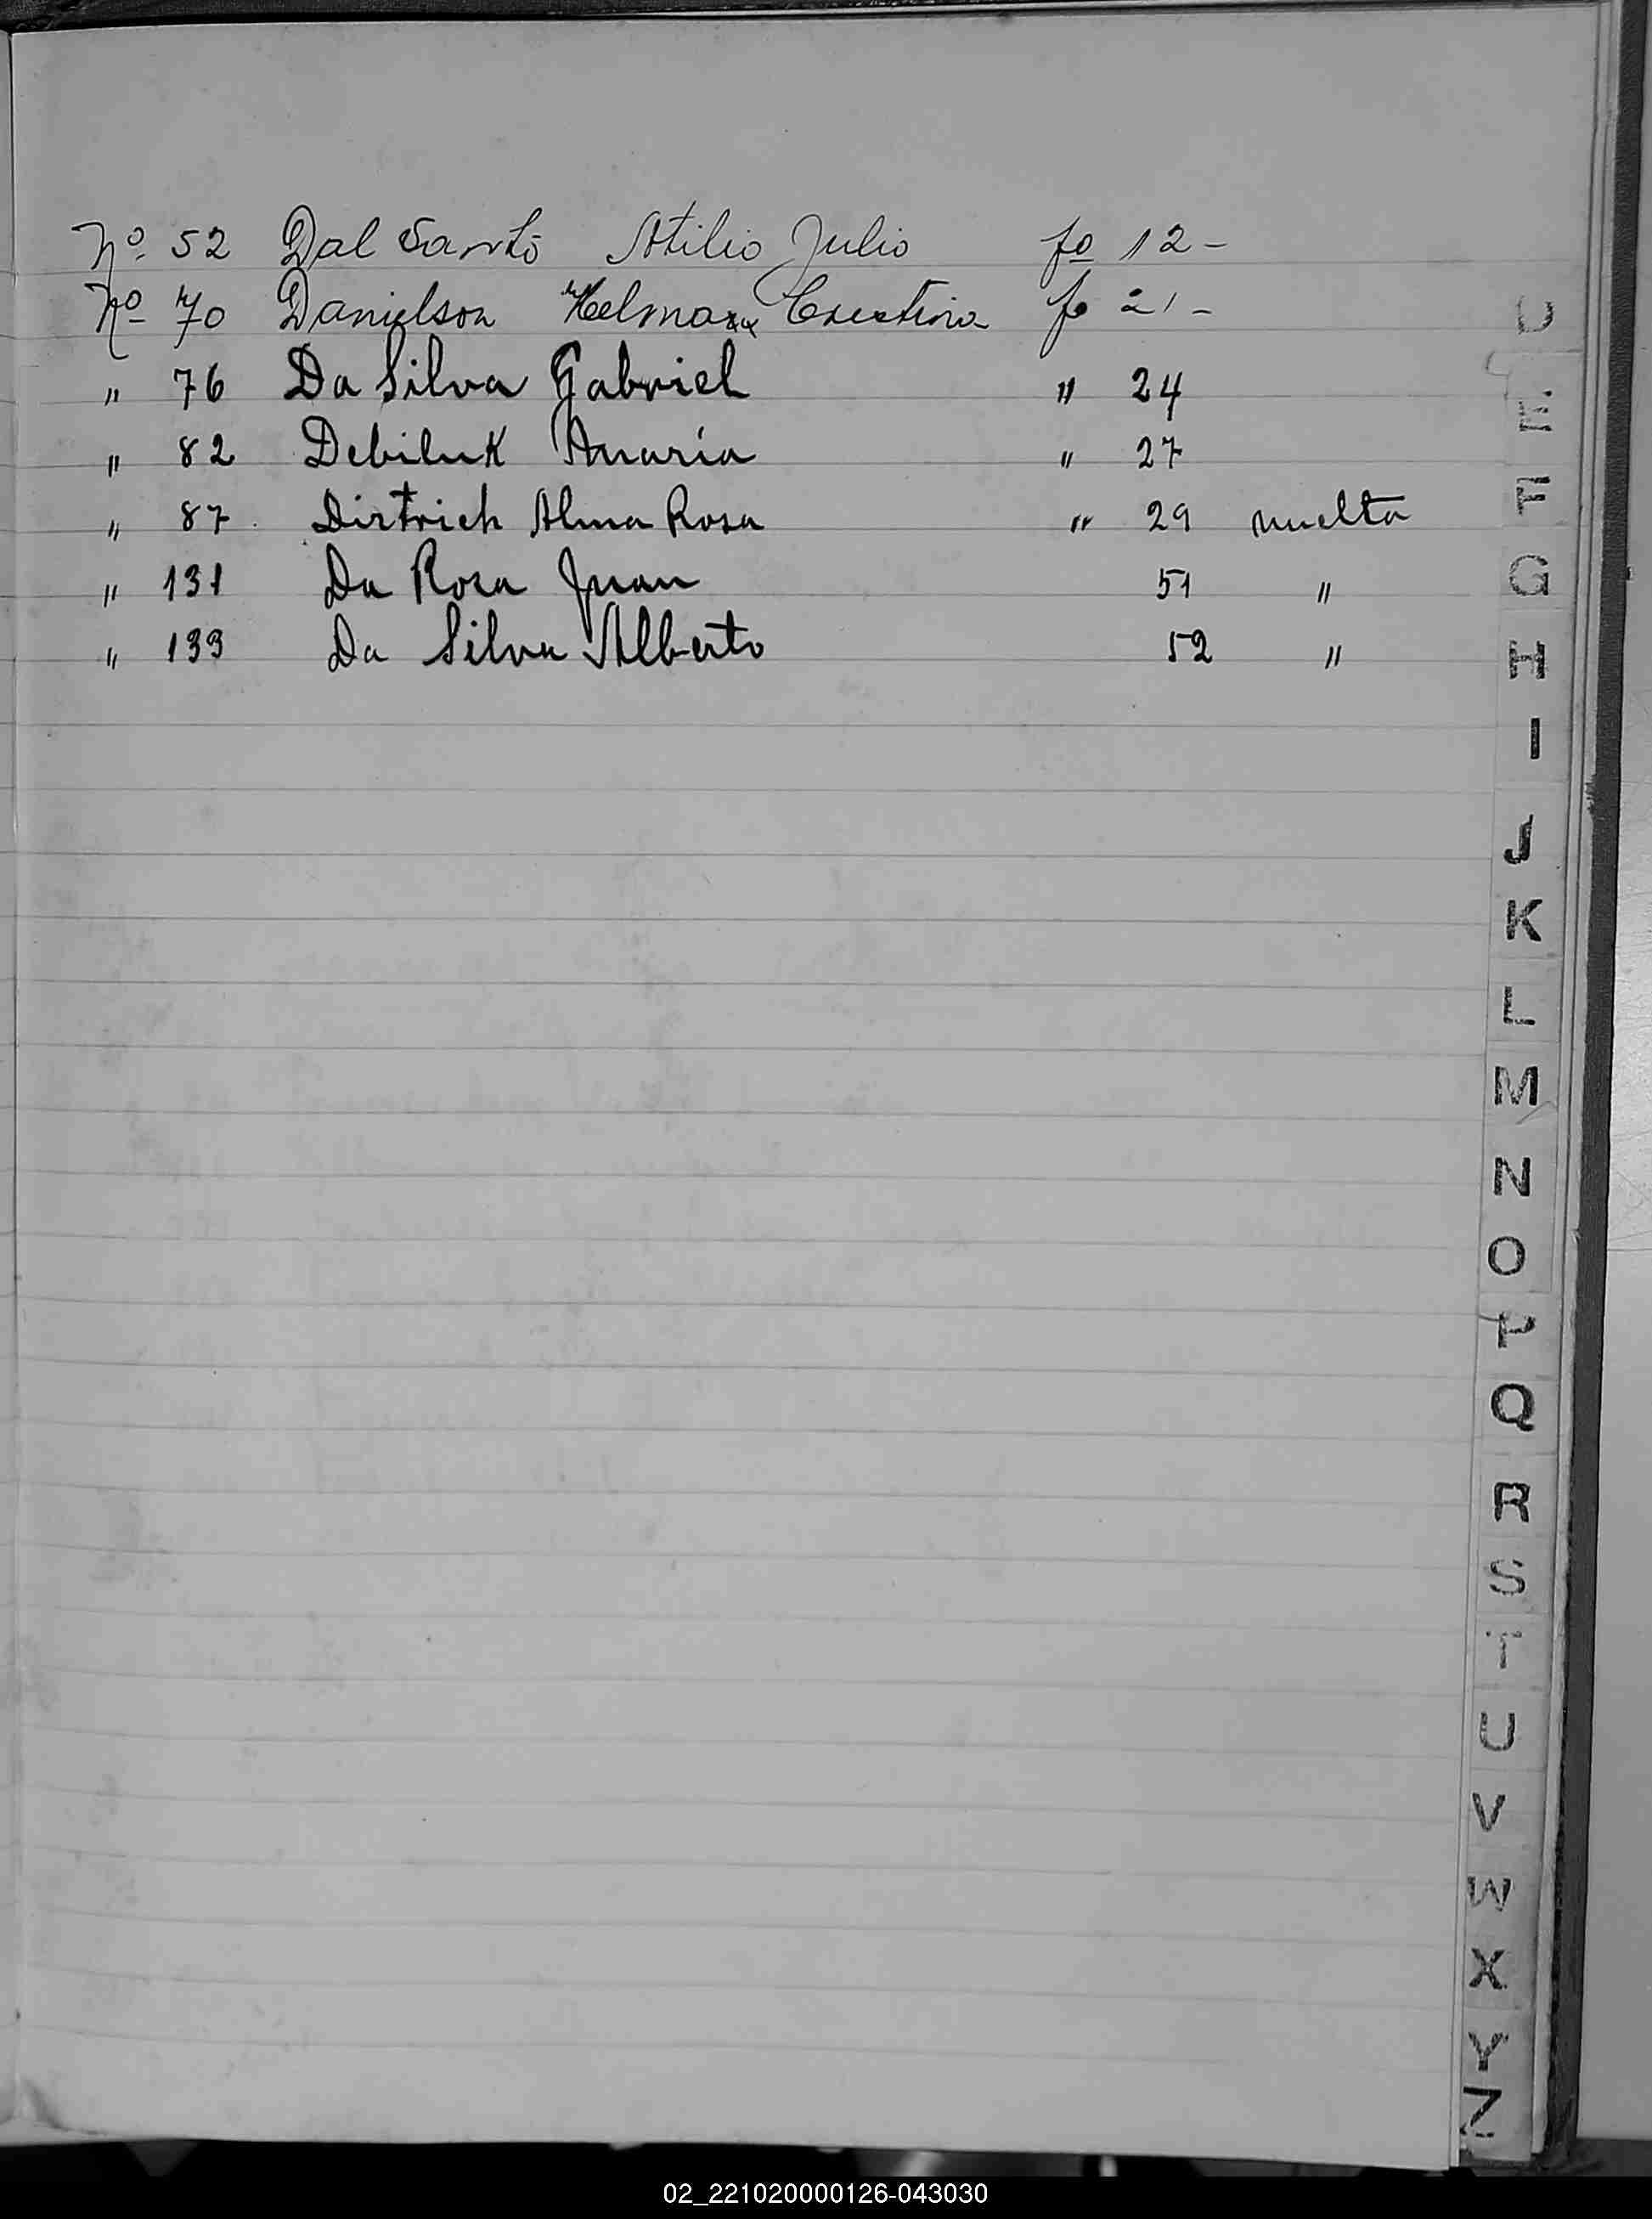 Nº 52 Dal Santo Atilio Julio fo 12 -
Nº 70 Danielson Cristina fo 21 -
" 76 Da Silva Gabriel " 24
" 82 Debiluk Anaria " 27
" 87 Dirtrich Alma Rosa " 29 vuelta
" 131 Da Rosa Juan 51 "
" 133 Da Silva Alberto 52 "
D
E
F
G
H
I
J
K
L
M
N
O
P
Q
R
S
T
U
V
W
X
Y
Z
02_221020000126-043030